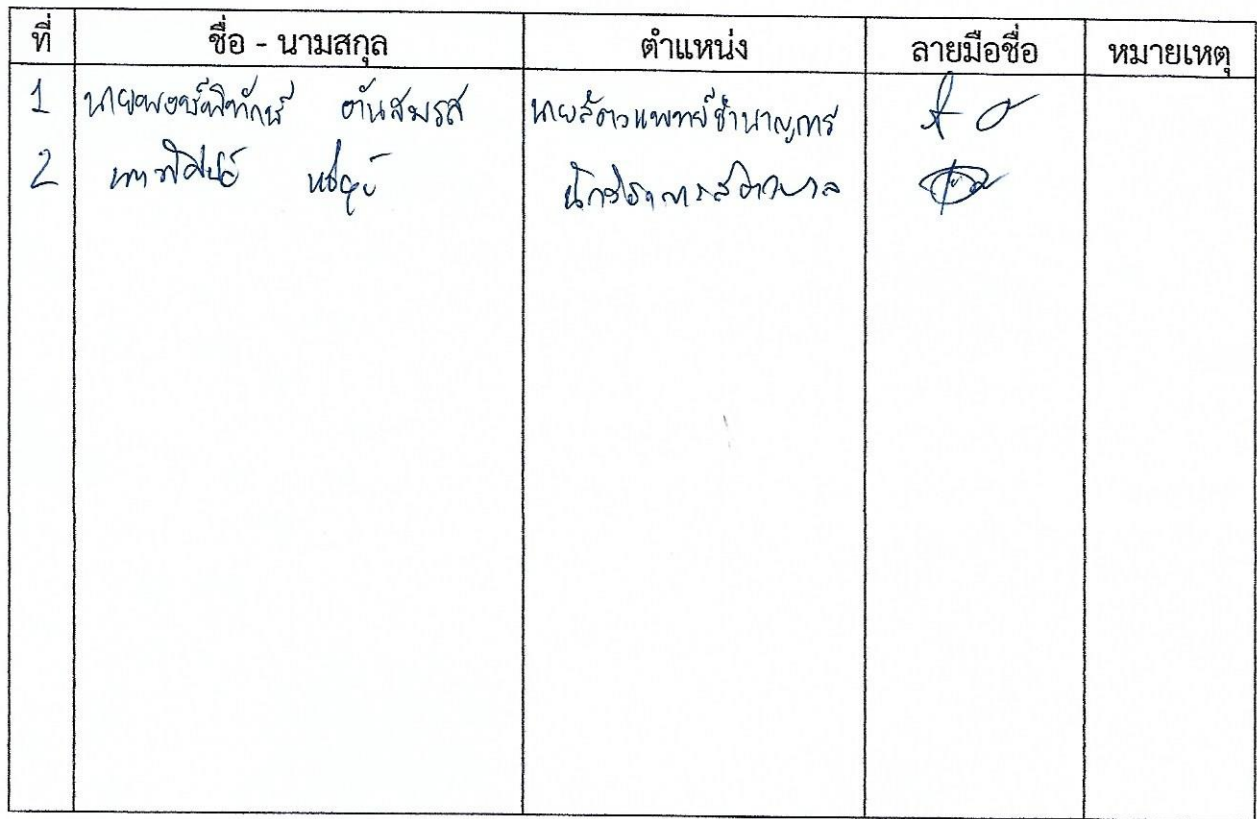 ที่ ชื่อ - นามสกุล ตำแหน่ง ลายมือชื่อ หมายเหตุ
1 นายพงษ์พิทักษ์ ตันสมรส นายสัตวแพทย์ชำนาญการ
2 นักวิชาการสัตวบาล